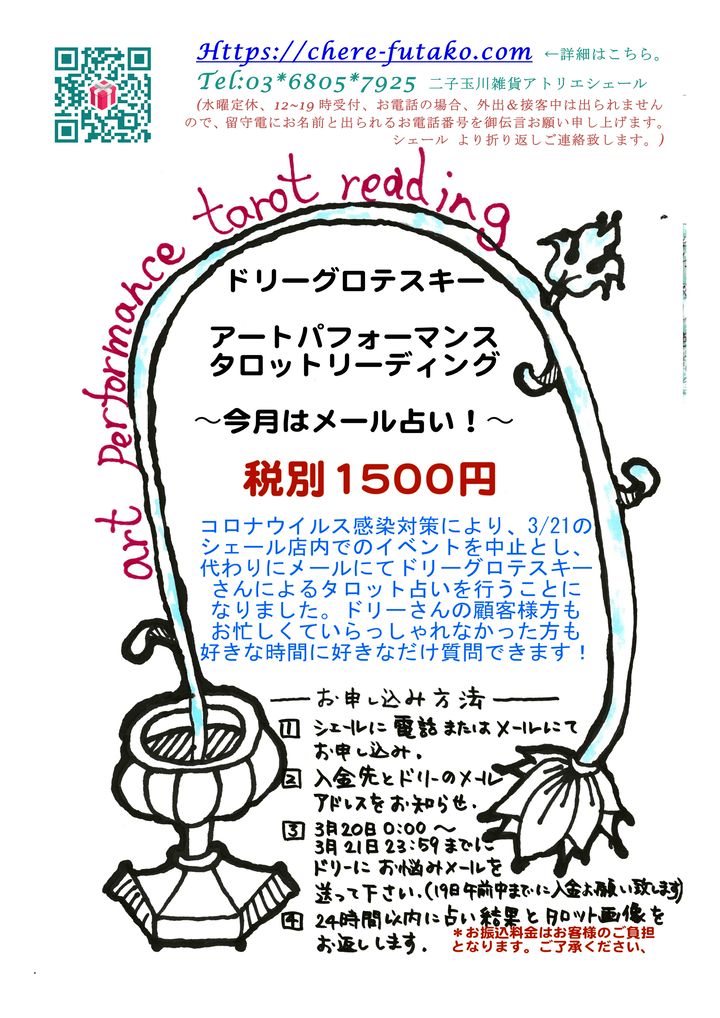 Https://chere-futako.com ←詳細はこちら。
Tel:03*6805*7925 二子玉川雑貨アトリエシェール
(水曜定休、12~19時受付、お電話の場合、外出&接客中は出られません
ので、留守電にお名前と出られるお電話番号を御伝言お願い申し上げます。
シェール より折り返しご連絡致します。)
art Performance tarot reading
ドリーグロテスキー
アートパフォーマンス
タロットリーディング
〜今月はメール占い!〜
税別1500円
コロナウイルス感染対策により、3/21の
シェール店内でのイベントを中止とし、
代わりにメールにてドリーグロテスキー
さんによるタロット占いを行うことに
なりました。ドリーさんの顧客様方も
お忙しくていらっしゃれなかった方も
好きな時間に好きなだけ質問できます!
―お申し込み方法―
1 シェールに電話またはメールにて
お申し込み.
2 入金先とドリーのメール
アドレスをお知らせ.
3 3月20日0:00〜
3月21日23:59までに
ドリーにお悩みメールを
送って下さい.(19日午前中までに入金お願い致します)
4 24時間以内に占い結果とタロット画像を
お返しします.
*お振込料金はお客様のご負担
となります。ご了承ください、